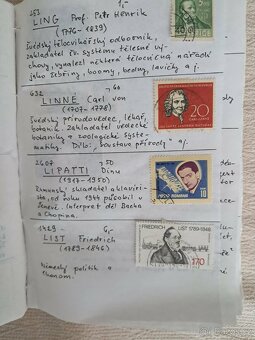 253
LING Prof. Petr Henrik
(1776-1839)
Švédský tělocvikářský odborník,
zakladatel sv. systému tělesné vý-
chovy, vynalezl některá tělocvičná nářadí
jako žebřiny, boomy, bedny, lavičky a j.
632 60
LINNÉ Carl von
(1707-1778)
Švédský přírodovědec, lékař,
botanik. Zakladatel vědecké
botaniky a zoologické system-
matiky. Dílo: "Soustava přírody" aj.
20
2607 50
LIPATTI Dinu
(1917-1950)
Rumunský skladatel a klavíri-
sta, od roku 1944 působil v
Ženevě. Interpret děl Bacha
a Chopina.
POSTA ROMANA
10
1429
LIST Friedrich
(1789-1846)
Německý politik a
ekonom.
FRIEDRICH LIST 1789-1846
170